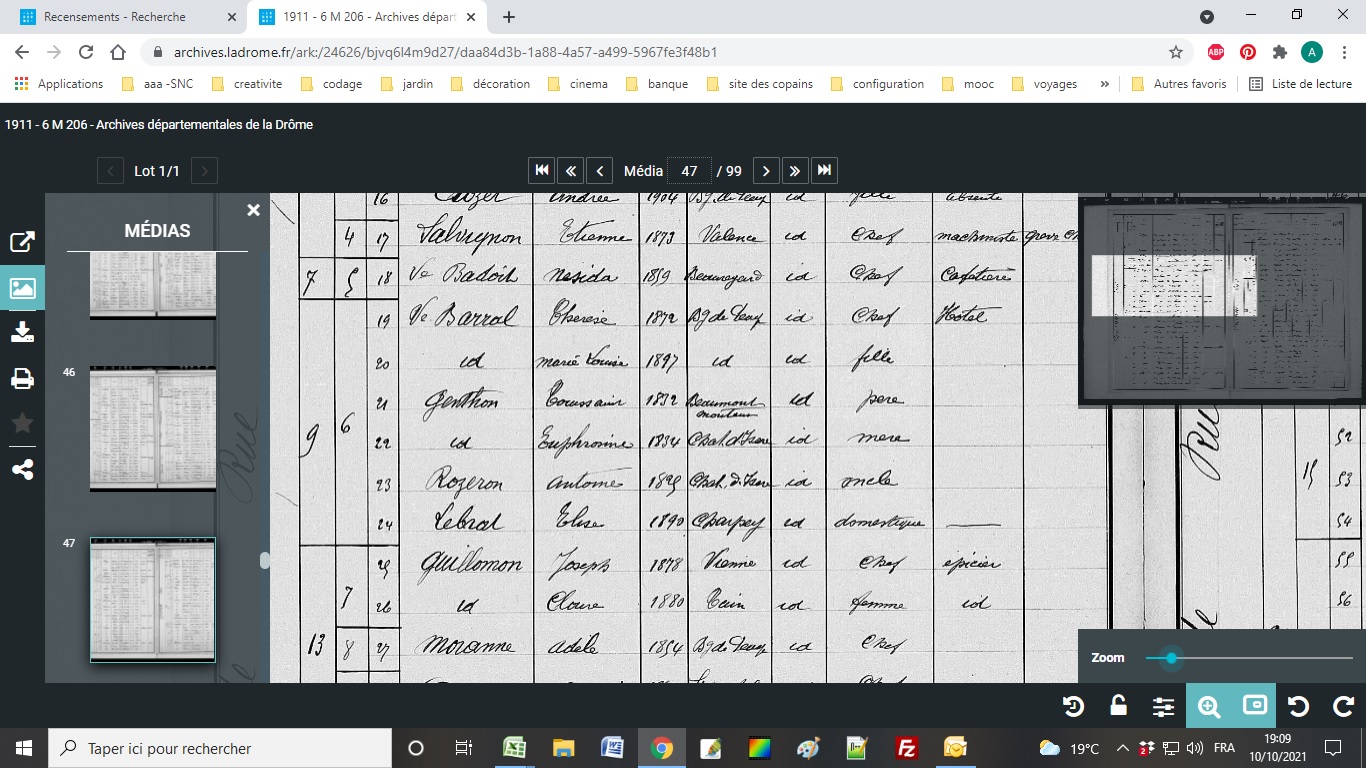 Recensements - Recherche
1911 - 6 M 206 - Archives départ
archives.ladrome.fr/ark:/24626/bjvq6l4m9d27/daa84d3b-1a88-4a57-a499-5967fe3f48b1
ABP A
Applications aaa -SNC creativite codage jardin décoration cinema banque site des copains configuration mooc voyages » Autres favoris Liste de lecture
1911 - 6 M 206 - Archives départementales de la Drôme
Lot 1/1 Média 47 / 99
MÉDIAS
46
47
16 andrée 1904 id fille absente
4 17 Etienne 1873 Valence id Chef machiniste
7 5 18 Ve Badoit nésida 1859 Beauregard id Chef Cafetière
19 Ve Barral Therese 1872 Bg de Peag id Chef Hotel
20 id marie Louise 1897 id id fille
21 Genthon Toussaint 1832 Beaumont monteux id pere
9 6 22 id Euphrosine 1834 Chat. d'Isere id mere
23 Rozeron antoine 1825 Chat. d'Isere id oncle
24 Lebrat Elise 1890 Charpey id domestique
25 Guillomon Joseph 1878 Vienne id Chef épicier
7 26 id Claire 1880 Tain id femme id
13 8 27 Moranne adèle 1854 Bg de Peag id Chef
Rue
52
15 53
54
55
56
Zoom
Taper ici pour rechercher
19°C FRA 19:09
10/10/2021